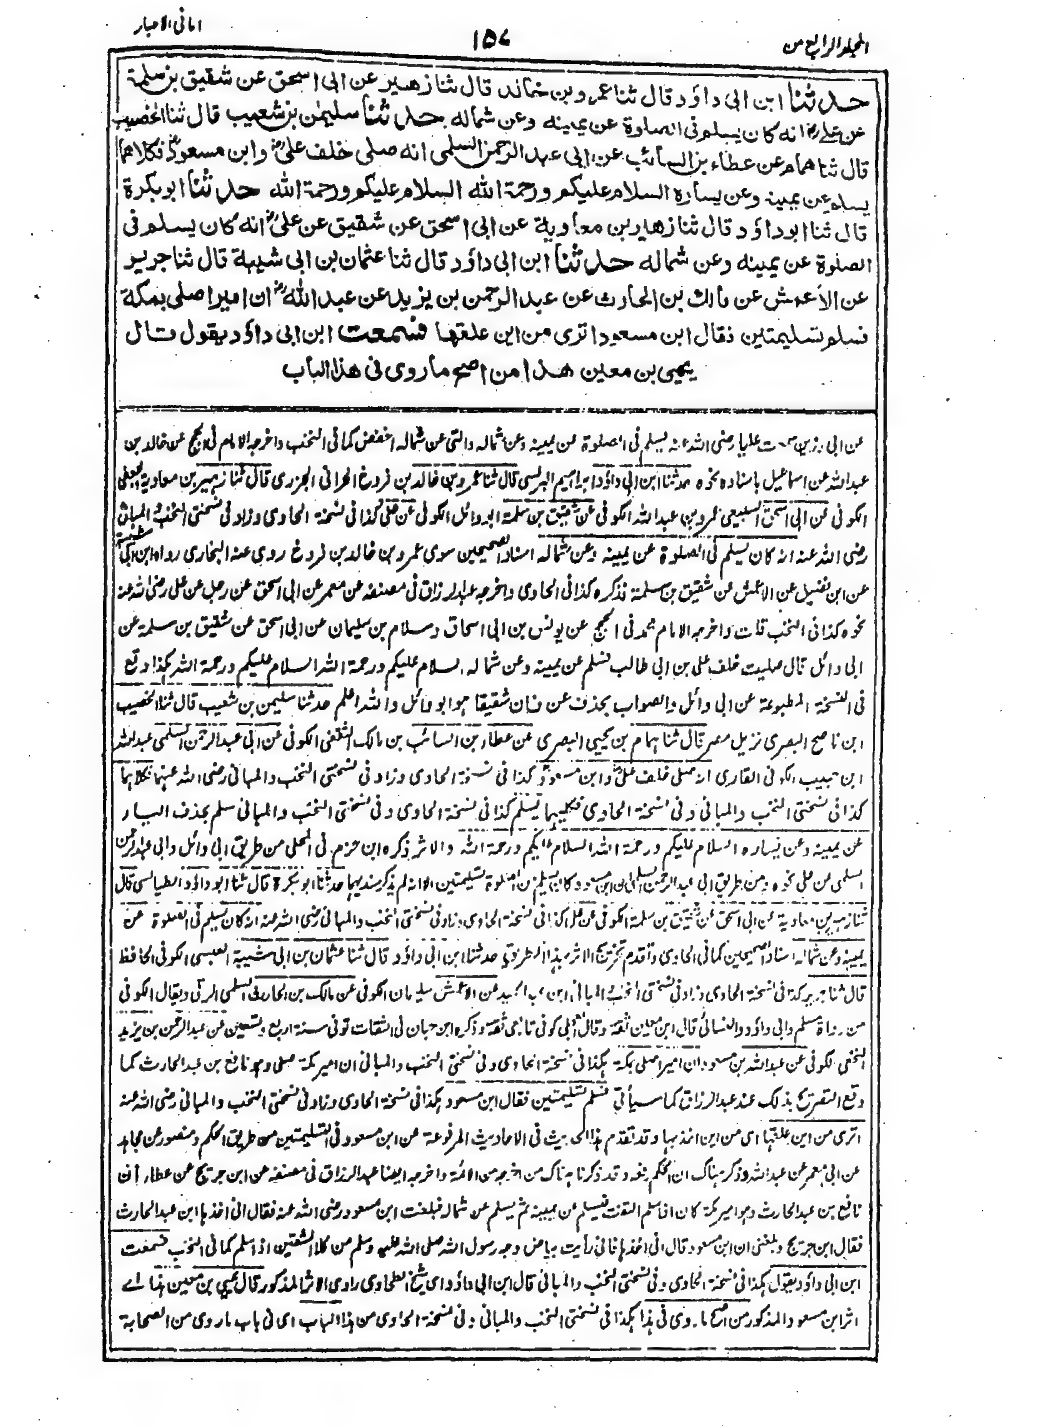 المجلد الرابع من
١٥٧
امانی الاحبار
حدثنا ابن ابی داؤد قال ثنا عمرو بن خالد قال ثنا زهیر عن ابی اسحق عن شقیق بن سلمة
عن علیؓ انه کان یسلم فی الصلوة عن یمینه وعن شماله حدثنا سلیمٰن بن شعیب قال ثنا الخصیب
قال ثنا همام عن عطاء بن السائب عن ابی عبد الرحمن السلمی انه صلی خلف علیؓ وابن مسعودؓ فکلاهما
یسلم عن یمینه وعن یساره السلام علیکم ورحمة الله السلام علیکم ورحمة الله حدثنا ابو بکرة
قال ثنا ابو داؤد قال ثنا زهیر بن معاویة عن ابی اسحق عن شقیق عن علیؓ انه کان یسلم فی
الصلوة عن یمینه وعن شماله حدثنا ابن ابی داؤد قال ثنا عثمان بن ابی شیبة قال ثنا جریر
عن الاعمش عن مالک بن الحارث عن عبد الرحمن بن یزید عن عبد اللهؓ ان امیرا صلی بمکة
فسلم تسلیمتین فقال ابن مسعود اتری من این علقها فسمعت ابن ابی داؤد یقول قال
یحیی بن معین هذا من اصح ما روی فی هذا الباب
علیا رضی الله عنه یسلم فی الصلوة عن یمینه وعن شماله والتی عن شماله اخفض کما فی النخب واخرجه الامام فی الحجج عن خالد بن
عبد الله عن اسماعیل باسناده نحوه حدثنا ابن ابی داؤد ابراهیم البرلسی قال ثنا عمرو بن خالد بن فروخ الحرانی الجزری قال ثنا زهیر بن معاویة الجعفی
الکوفی عن ابی اسحق السبیعی عمرو بن عبد الله الکوفی عن شقیق بن سلمة ابو وائل الکوفی عن علی کذا فی نسخة الحاوی وزاد فی نسختی النخب والمبانی
رضی الله عنه انه کان یسلم فی الصلوة عن یمینه وعن شماله اسناد الصحیحین سوی عمرو بن خالد بن فروخ روی عنه البخاری رواه ابن ابی شیبة
عن ابن فضیل عن الاعمش عن شقیق بن سلمة فذکره کذا فی الحاوی واخرجه عبد الرزاق فی مصنفه عن معمر عن ابی اسحق عن رجل عن علی رضی الله عنه
نحوه کذا فی النخب قلت واخرجه الامام محمد فی الحجج عن یونس بن ابی اسحاق وسلام بن سلیمان عن ابی اسحق عن شقیق بن سلمة عن
ابی وائل قال صلیت خلف علی بن ابی طالب فسلم عن یمینه وعن شماله السلام علیکم ورحمة الله السلام علیکم ورحمة الله هکذا وقع
فی النسخة المطبوعة عن ابی وائل والصواب بحذف عن فان شقیقا هو ابو وائل والله اعلم حدثنا سلیمن بن شعیب قال ثنا الخصیب
ابن ناصح البصری نزیل مصر قال ثنا همام بن یحیی البصری عن عطاء بن السائب بن مالک الثقفی الکوفی عن ابی عبد الرحمن السلمی عبد الله
ابن حبیب الکوفی القاری انه صلی خلف علیؓ وابن مسعودؓ کذا فی نسخة الحاوی وزاد فی نسختی النخب والمبانی رضی الله عنهما فکلاهما
کذا فی نسختی النخب والمبانی وفی نسخة الحاوی فکلیهما یسلم کذا فی نسخة الحاوی وفی نسختی النخب والمبانی سلم بحذف الیاء
عن یمینه وعن یساره السلام علیکم ورحمة الله السلام علیکم ورحمة الله والاثر ذکره ابن حزم فی المحلی من طریق ابی وائل وابی عبد الرحمن
السلمی عن علی نحوه ومن طریق ابی عبد الرحمن السلمی ان ابن مسعود کان یسلم من الصلوة تسلیمتین الا انه لم یذکر سندیهما حدثنا ابو بکرة قال ثنا ابو داؤد الطیالسی قال
ثنا زهیر بن معاویة عن ابی اسحق عن شقیق بن سلمة الکوفی عن علی کذا فی نسخة الحاوی وزاد فی نسختی النخب والمبانی رضی الله عنه انه کان یسلم فی الصلوة عن
یمینه وعن شماله اسناد الصحیحین کما فی الحاوی وتقدم تخریج الاثر بهذا الطریق حدثنا ابن ابی داؤد قال ثنا عثمان بن ابی شیبة العبسی الکوفی الحافظ
قال ثنا جریر کذا فی نسخة الحاوی وزاد فی نسختی النخب والمبانی ابن عبد الحمید عن الاعمش سلیمان الکوفی عن مالک بن الحارث السلمی الرقی ویقال الکوفی
من رواة مسلم وابی داؤد والنسائی قال ابن معین ثقة وقال العجلی کوفی تابعی ثقة وذکره ابن حبان فی الثقات توفی سنة اربع وتسعین عن عبد الرحمن بن یزید
النخعی الکوفی عن عبد الله بن مسعود ان امیرا صلی بمکة هکذا فی نسخة الحاوی وفی نسختی النخب والمبانی ان امیر مکة صلی وهو نافع بن عبد الحارث کما
وقع التصریح بذلک عند عبد الرزاق کما سیأتی فسلم تسلیمتین فقال ابن مسعود هکذا فی نسخة الحاوی وزاد فی نسختی النخب والمبانی رضی الله عنه
اتری من این علقها ای من این اخذها وقد تقدم هذا الحدیث فی الاحادیث المرفوعة عن ابن مسعود فی التسلیمتین من طریق الحکم ومنصور عن مجاهد
عن ابی معمر عن عبد الله وذکر هناک ان الحکم رفعه وقد ذکرنا هناک من اخرجه من الائمة واخرجه ایضا عبد الرزاق فی مصنفه عن ابن جریج عن عطاء ان
نافع بن عبد الحارث وهو امیر مکة کان اذا سلم التفت فیسلم عن یمینه ثم یسلم عن شماله فبلغت ابن مسعود رضی الله عنه فقال انی اخذها ابن عبد الحارث
فقال ابن جریج وبلغنی ان ابن مسعود قال انی اخذها فانی رأیت بیاض وجه رسول الله صلی الله علیه وسلم من کلا الشقین اذا سلم کما فی النخب فسمعت
ابن ابی داؤد یقول هکذا فی نسخة الحاوی وفی نسختی النخب والمبانی قال ابن ابی داؤد ای شیخ الطحاوی راوی الاثر المذکور قال یحیی بن معین هذا اے
اثر ابن مسعود المذکور من اصح ما روی فی هذا هکذا فی نسختی النخب والمبانی وفی نسخة الحاوی من هذا الباب ای فی باب ما روی من الصحابة